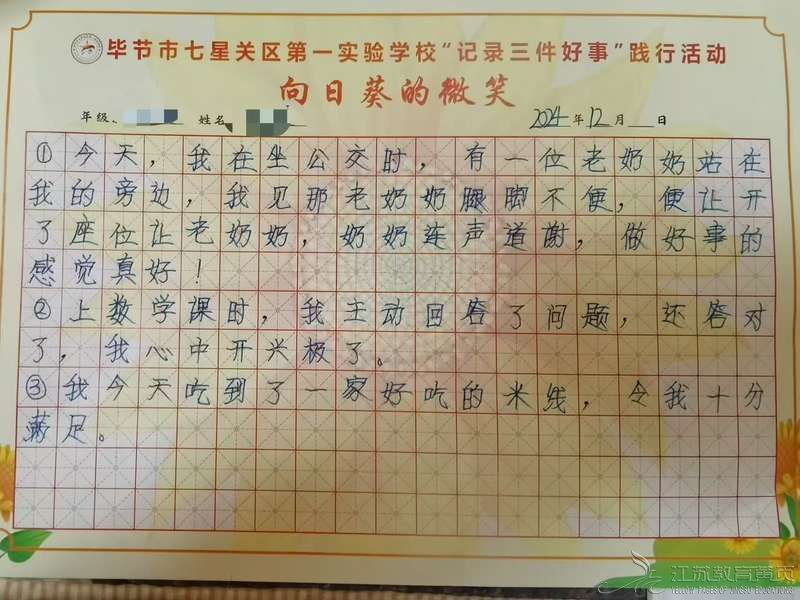 毕节市七星关区第一实验学校“记录三件好事”践行活动
向日葵的微笑
年级: 姓名 2024年12月 日
①今天，我在坐公交时，有一位老奶奶站在
我的旁边，我见那老奶奶腿脚不便，便让开
了座位让老奶奶，奶奶连声道谢，做好事的
感觉真好！
②上数学课时，我主动回答了问题，还答对
了，我心中开兴极了。
③我今天吃到了一家好吃的米线，令我十分
满足。
江苏教育黄页
YELLOW PAGES OF JIANGSU EDUCATIONS